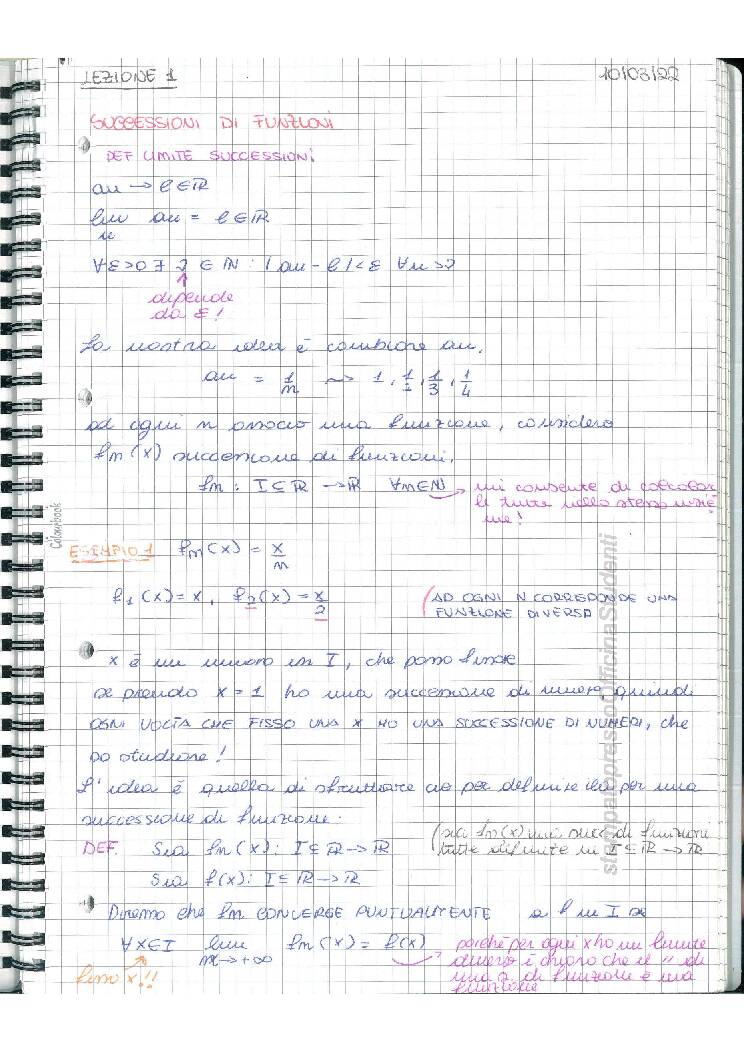 LEZIONE 1
10/03/22
SUCCESSIONI DI FUNZIONI
DEF LIMITE SUCCESSIONI
an → l ∈ ℝ
lim an = l ∈ ℝ
n
∀ε>0 ∃ ν ∈ ℕ : |an - l| < ε ∀n > ν
dipende
da ε!
La nostra idea è cambiare an.
an = 1/n ~> 1, 1/2, 1/3, 1/4
ad ogni n associo una funzione, considero
fn(x) successione di funzioni.
fn : I ⊆ ℝ → ℝ ∀n∈ℕ
mi consente di calcolar
le tutte nello stesso insie
me!
Colourbook
ESEMPIO 1 fn(x) = x/n
f1(x) = x, f2(x) = x/2
AD OGNI N CORRISPONDE UNA
FUNZIONE DIVERSA
x è un numero in I, che posso fissare
se prendo x = 1 ho una successione di numeri, quindi
OGNI VOLTA CHE FISSO UNA X HO UNA SUCCESSIONE DI NUMERI, che
so studiare!
L'idea è quella di sfruttare ciò per definire per una
successione di funzione:
DEF. Sia fn(x): I ⊆ ℝ → ℝ
(sia fn(x) una succ. di funzioni
tutte definite in I ⊆ ℝ → ℝ
Sia f(x): I ⊆ ℝ → ℝ
Diremo che fn CONVERGE PUNTUALMENTE a f in I se
∀x∈I lim fn(x) = f(x)
n→+∞
fisso x!!
perché per ogni x ho un limite
diverso è chiaro che il " di
una di funzione è una
funzione
stampatopressoOfficinaStudenti